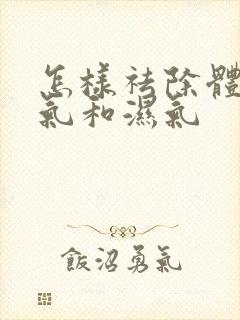 怎樣祛除體
氣和濕氣
飯沼勇氣